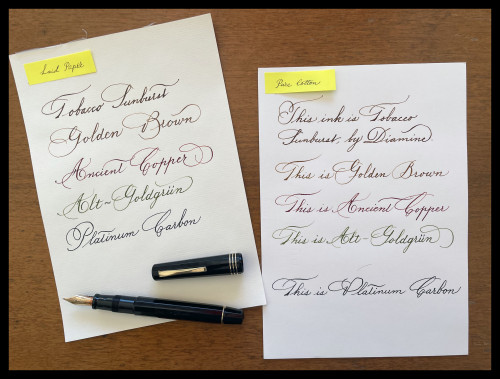 Paper
Tobacco Sunburst
Golden Brown
Ancient Copper
Alt-Goldgrün
Platinum Carbon
Pure Cotton
This ink is Tobacco
Sunburst by Diamine
This is Golden Brown
This is Ancient Copper
This is Alt-Goldgrün
This is Platinum Carbon